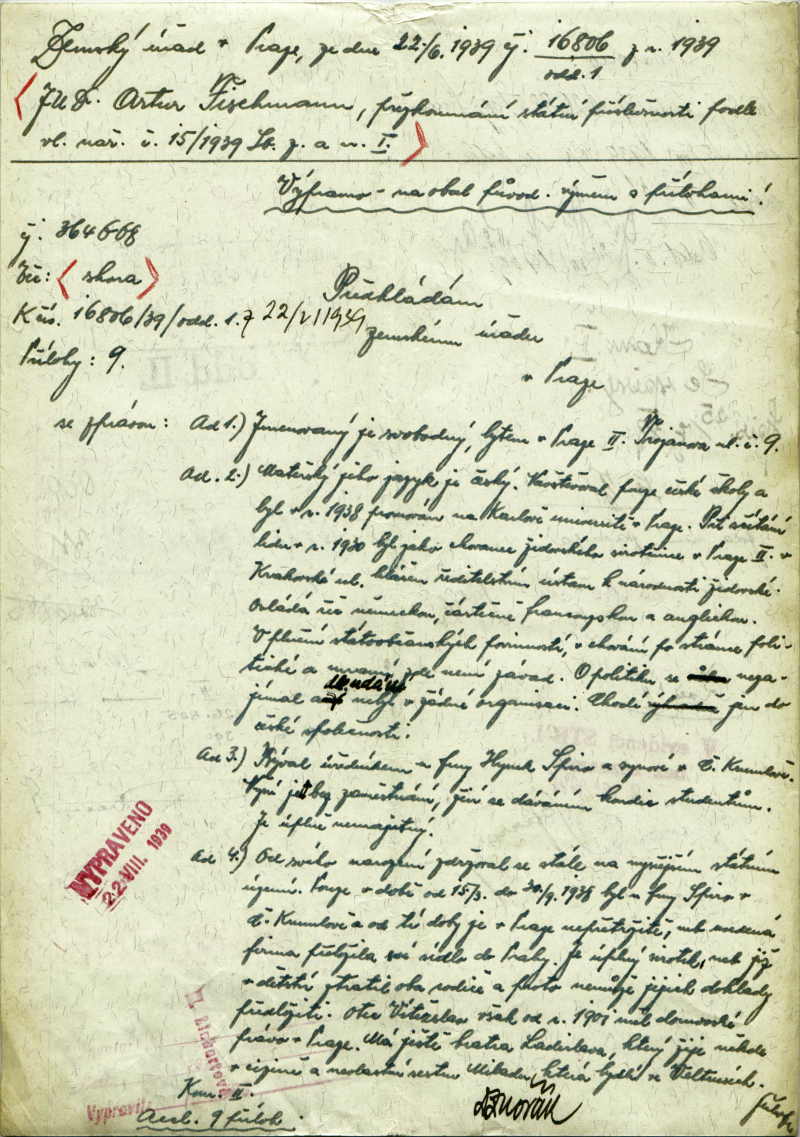 Zemský úřad v Praze, ze dne 22./6. 1939 čj. 16806 z r. 1939
odd. 1
JUDr. Artur Fischmann, přezkoumání státní příslušnosti podle
vl. nař. č. 15/1939 Sb. z. a n. I.
Výpravno - na obal původ. výměn s přílohami!
čj. 364668
Věc: shora
K čís. 16806/39/odd. 1. z 22/VI 1939
Předkládám
zemskému úřadu
Přílohy: 9.
v Praze
se zprávou: Ad 1.) Jmenovaný je svobodný, bytem v Praze II. Trojanova ul. č. 9.
Ad. 2.) Mateřský jeho jazyk je český. Navštěvoval pouze české školy a
byl v r. 1938 promován na Karlově universitě v Praze. Při sčítání
lidu v r. 1930 byl jako chovanec židovského sirotčince v Praze II. v
Krakovské ul. hlášen ředitelstvím ústavu k národnosti židovské.
Ovládá řeč německou, částečně francouzskou a anglickou.
V plnění státoobčanských povinností, v chování po stránce poli-
tické a mravní zde není závad. O politiku se neza-
jímal a nebyl v žádné organisaci. Chodí jen do
české společnosti.
Ad 3.) Býval úředníkem u fmy Hynek Spiro a synové v Č. Krumlově.
Nyní je bez zaměstnání, živí se dáváním kondic studentům.
Je úplně nemajetný.
Ad 4.) Od svého narození zdržoval se stále na nynějším státním
území. Pouze v době od 15/3. do 30/9. 1938 byl u fmy Spiro v
Č. Krumlově a od té doby je v Praze nepřetržitě, neb uvedená
firma přeložila své sídlo do Prahy. Je úplný sirotek, neb již
v dětství ztratil oba rodiče a proto nemůže jejich doklady
předložiti. Otec Vítězslav však od r. 1901 měl domovské
právo v Praze. Má ještě bratra Ladislava, který žije někde
v cizině a nevlastní sestru která bydlí ve Veltrusích.
Kom. II.
Novák
Přílohy
Vypravil:
9 příloh
VYPRAVENO
22. VIII. 1939